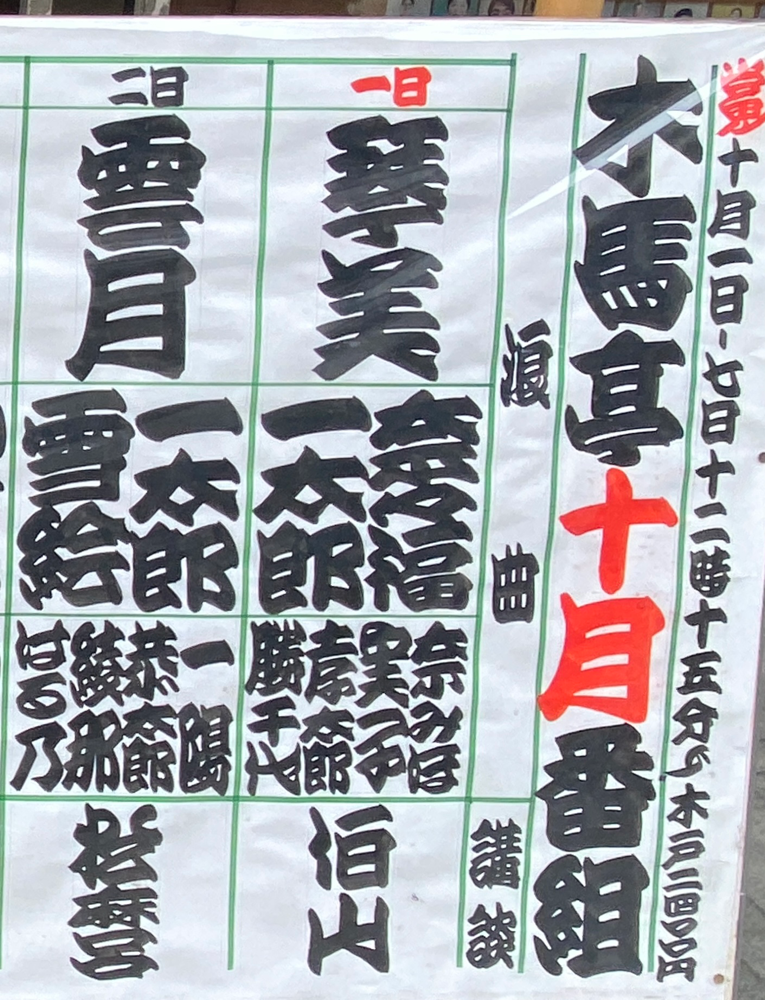 十月一日-七日十二時十五分より木戸二四〇〇円
木馬亭十月番組
浪曲
講談
一日
琴美
奈々福
一太郎
奈みほ
実子
孝太郎
勝千代
伯山
二日
雲月
一太郎
雪絵
一陽
恭太郎
綾那
はる乃
松麿